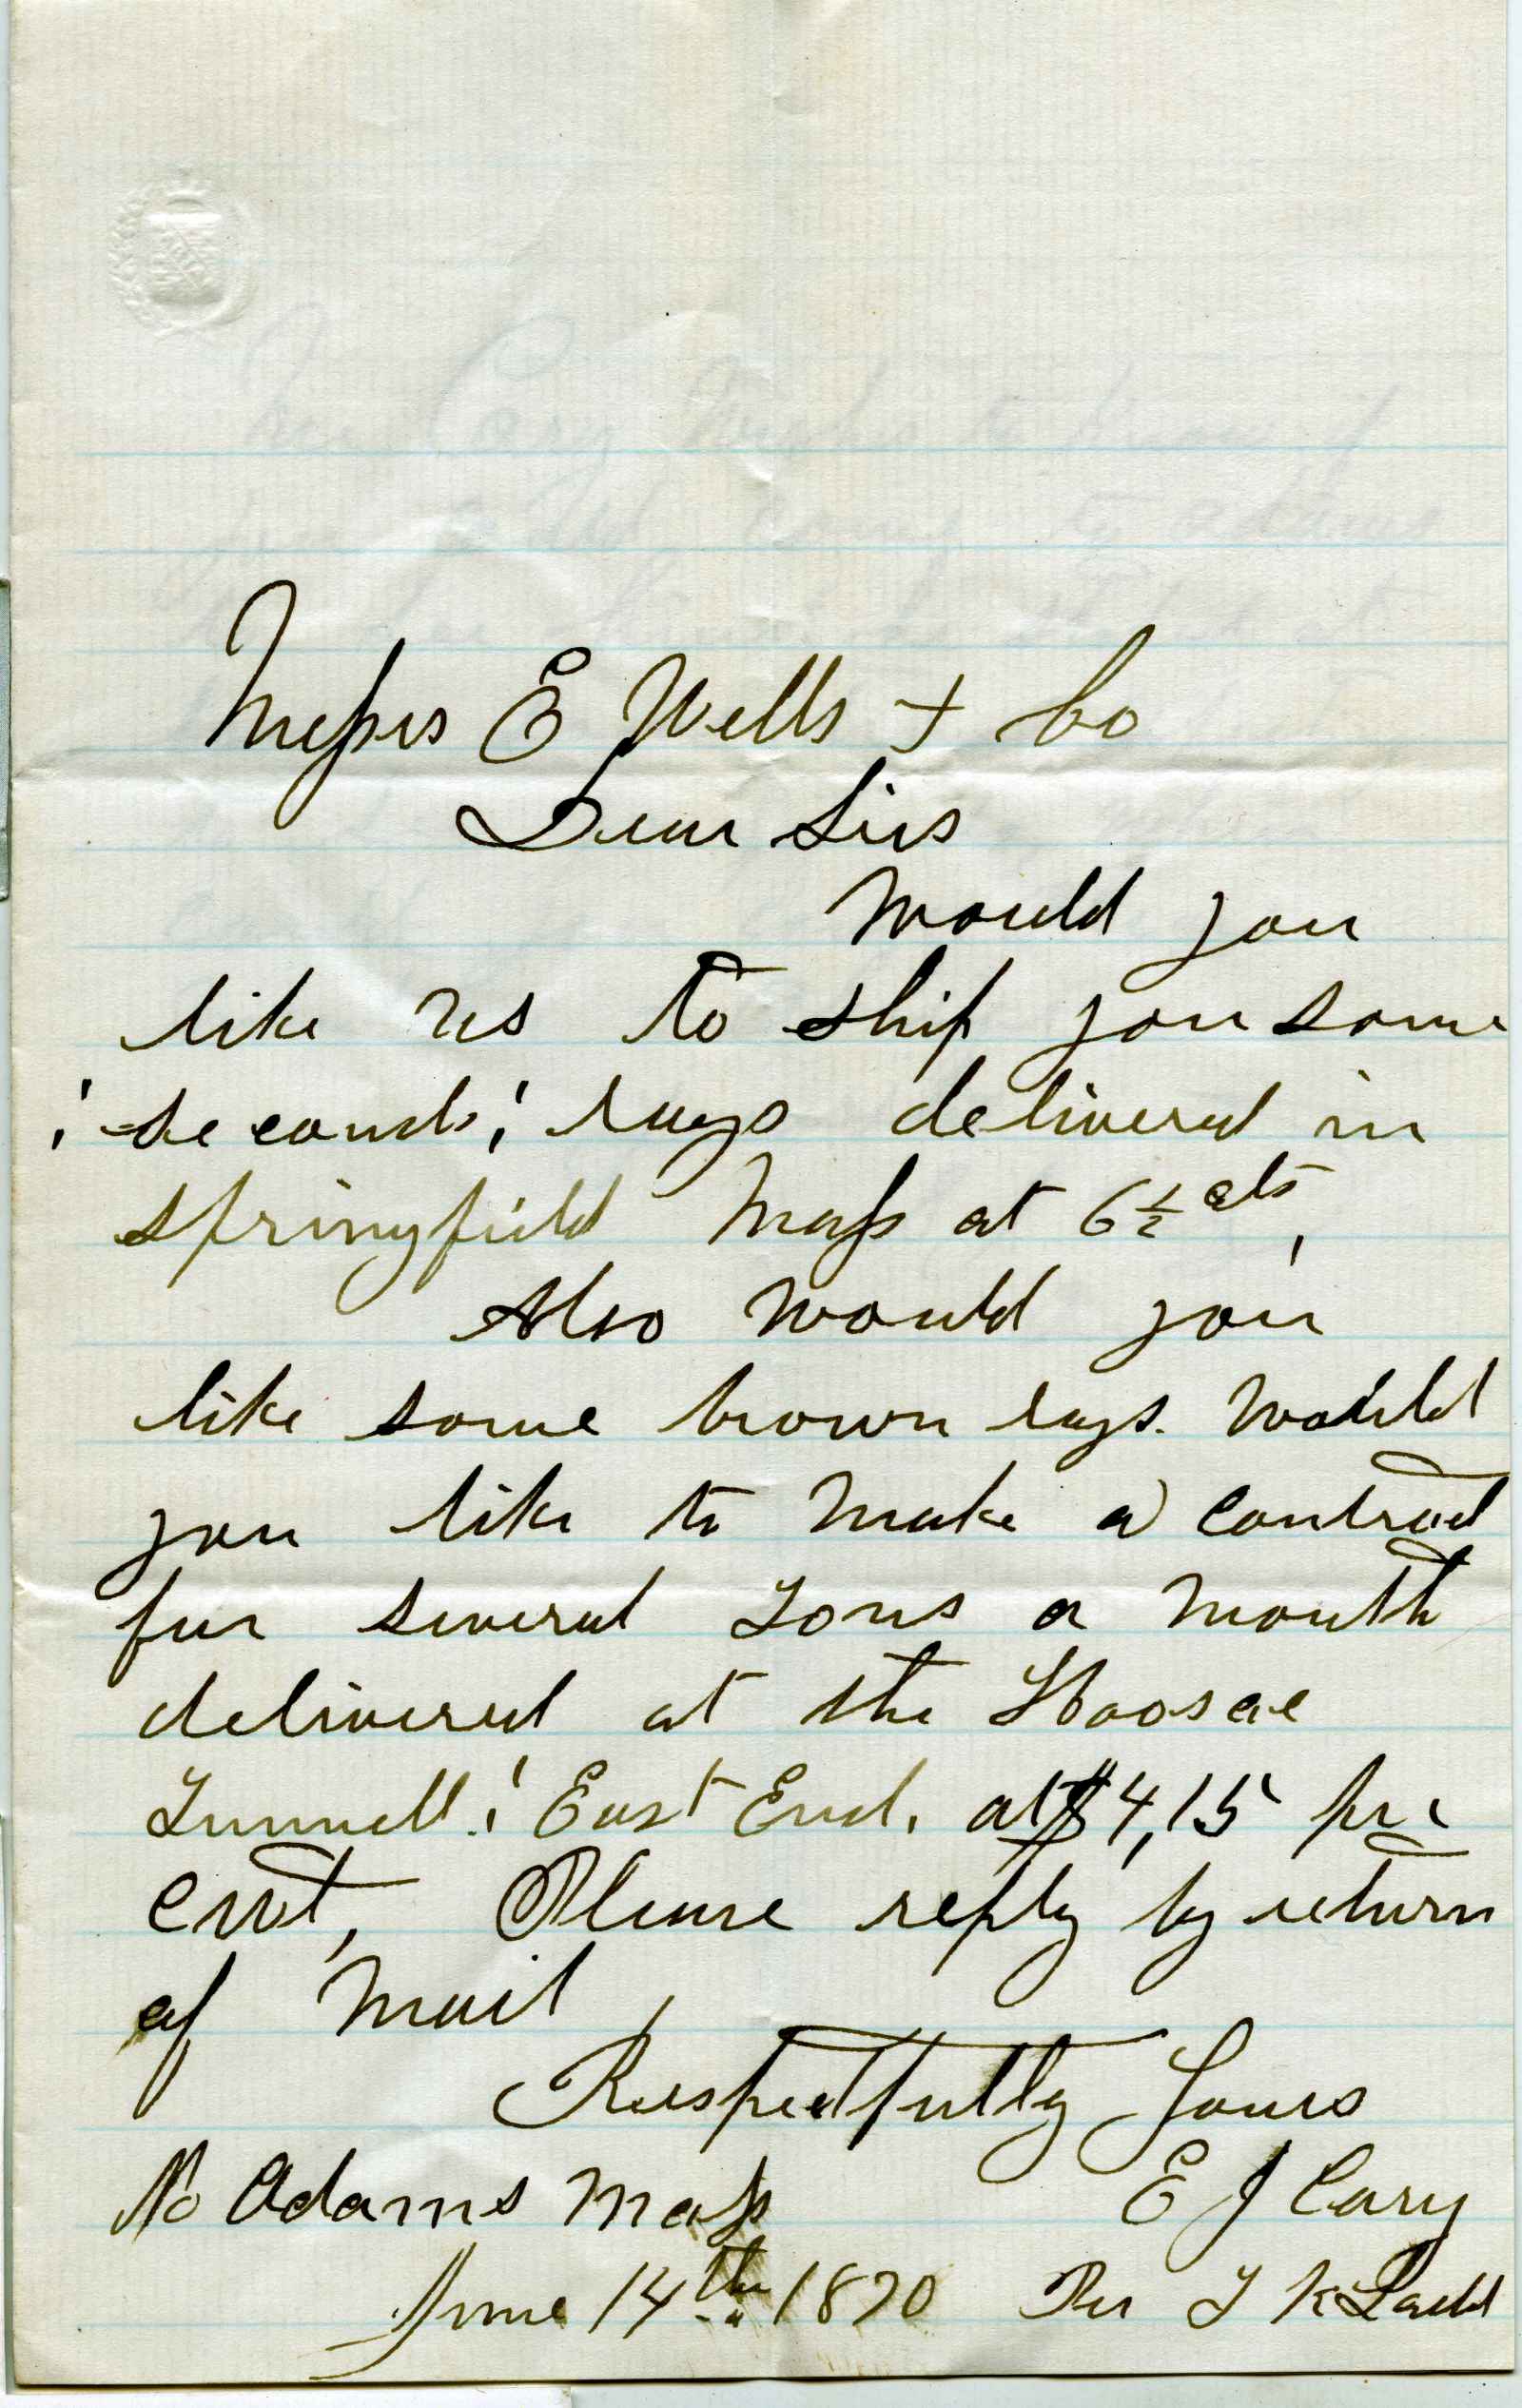 Messrs E Wells + Co
Dear Sirs
Would you
like us to ship you some
"seconds" rags delivered in
Springfield Mass at 6½ cts,
Also would you
like some brown rags. Would
you like to make a contract
for several Tons a month
delivered at the Hoosac
Tunnell "East End. at $4,15 per
cwt, Please reply by return
of Mail,
Respectfully Yours
No Adams Mass E J Cary
June 14th 1870 Per T K Ladd